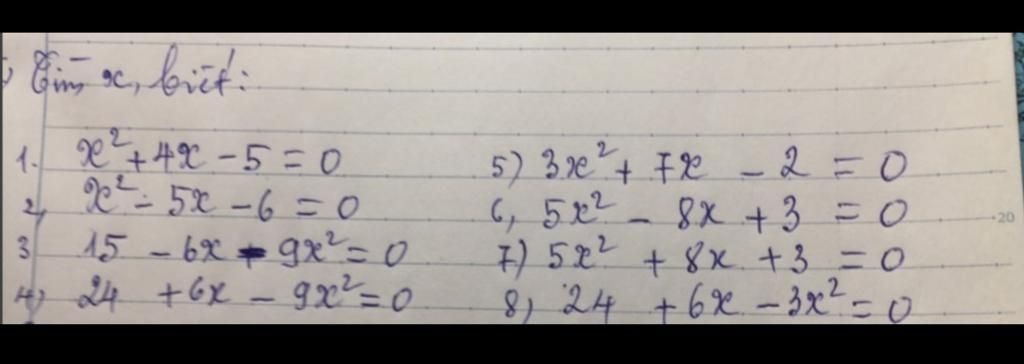 Tìm x, biết:
1. x² + 4x - 5 = 0
2, x² - 5x - 6 = 0
3 15 - 6x - 9x² = 0
4, 24 + 6x - 9x² = 0
5) 3x² + 7x - 2 = 0
6, 5x² - 8x + 3 = 0
7) 5x² + 8x + 3 = 0
8, 24 + 6x - 3x² = 0
20